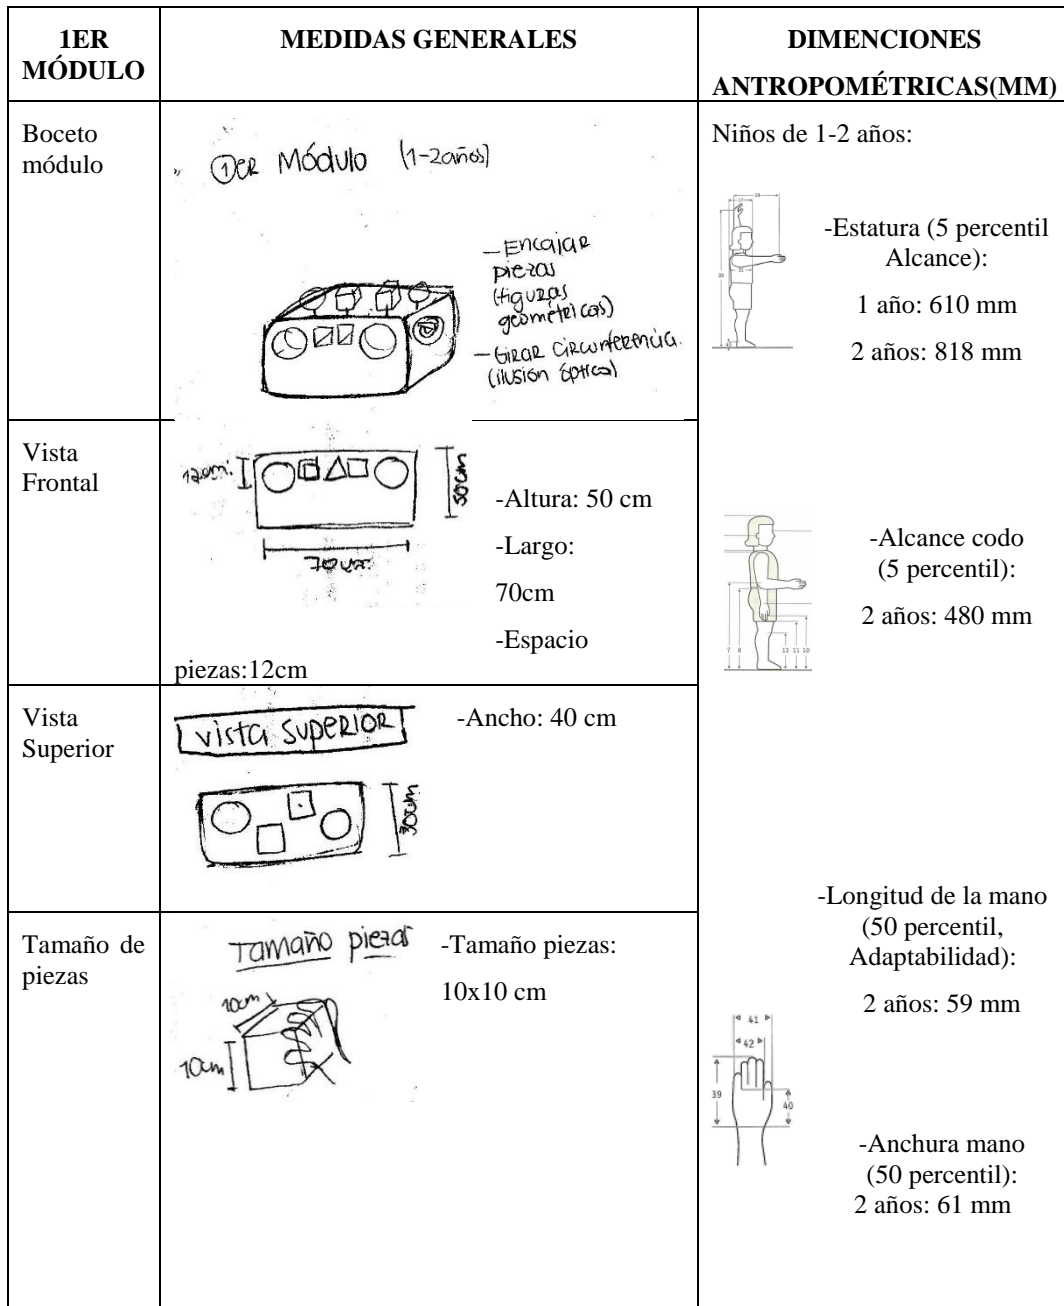 1ER
MÓDULO
MEDIDAS GENERALES
DIMENCIONES
ANTROPOMÉTRICAS(MM)
Boceto
módulo
1ER MÓdulo (1-2años)
- Encajar
piezas
(figuras
geométricas)
- Girar circunferencia.
(ilusión óptica)
Niños de 1-2 años:
-Estatura (5 percentil
Alcance):
1 año: 610 mm
2 años: 818 mm
Vista
Frontal
12cm.
50cm
70cm.
-Altura: 50 cm
-Largo:
70cm
-Espacio
piezas:12cm
-Alcance codo
(5 percentil):
2 años: 480 mm
7 8 12 11 10
Vista
Superior
vista SUPERIOR
30cm
-Ancho: 40 cm
Tamaño de
piezas
Tamaño piezas
10cm
10cm
-Tamaño piezas:
10x10 cm
-Longitud de la mano
(50 percentil,
Adaptabilidad):
2 años: 59 mm
41
42
39
40
-Anchura mano
(50 percentil):
2 años: 61 mm